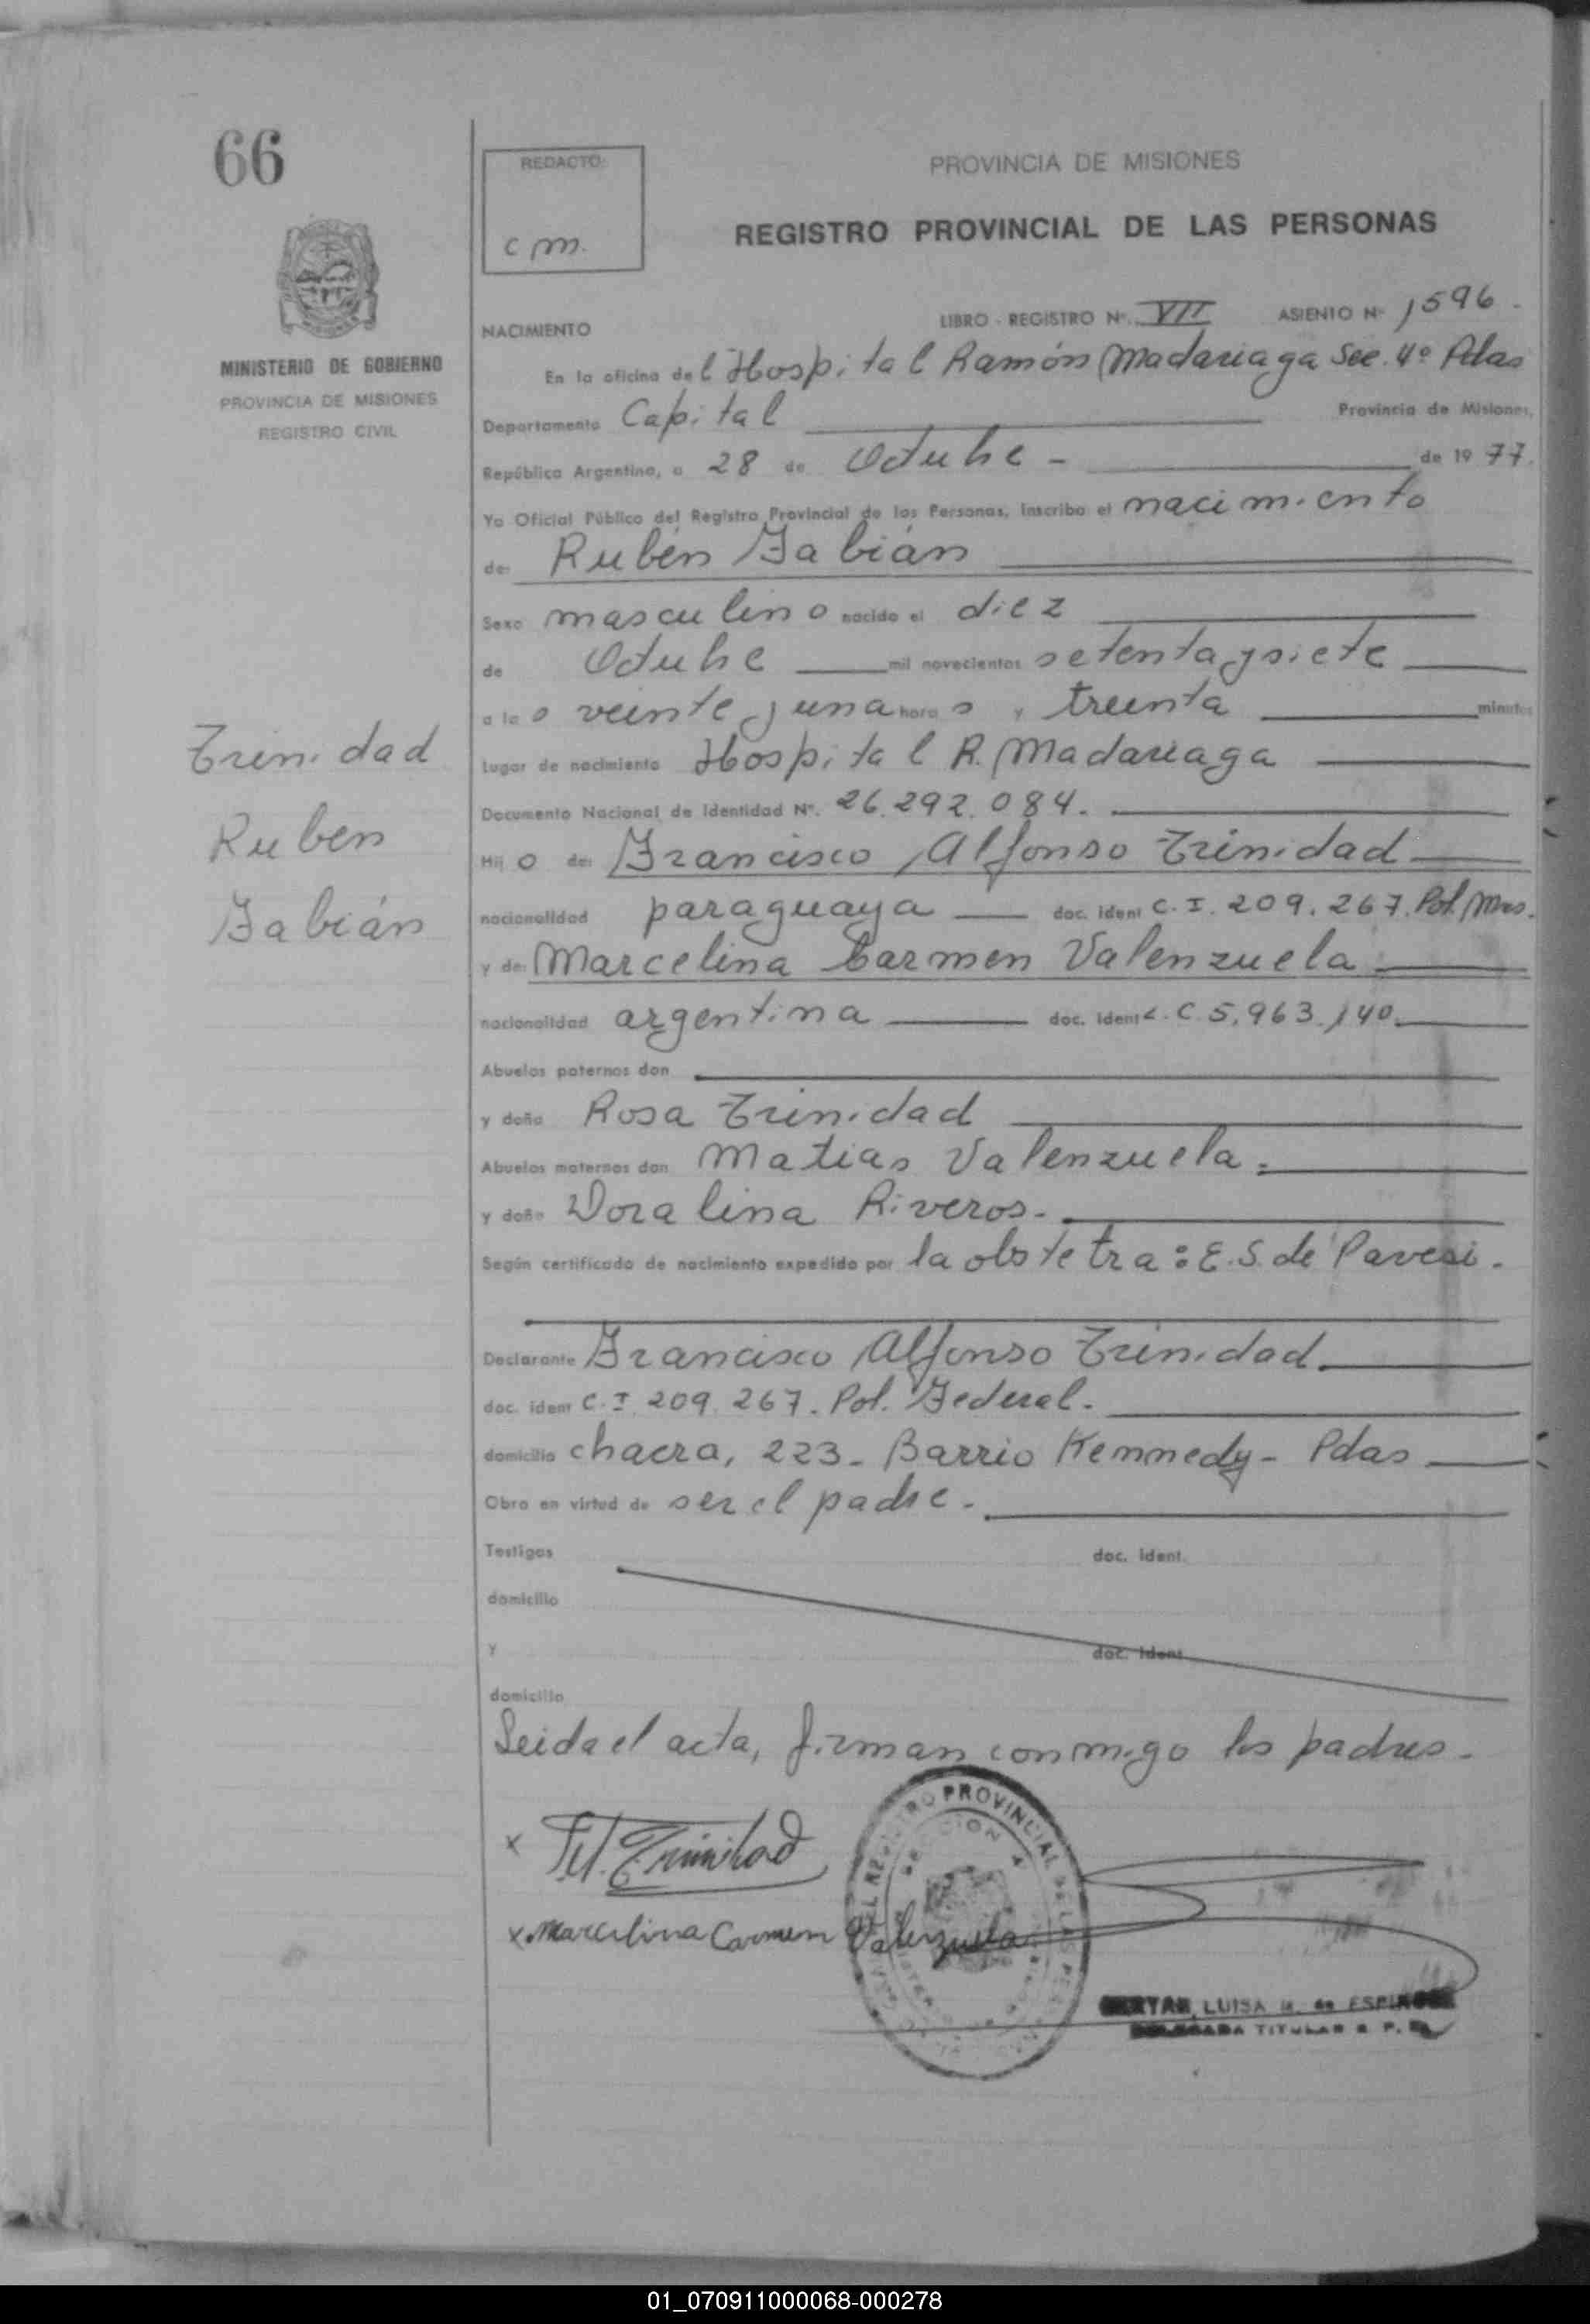 66
REDACTO:
c m.
PROVINCIA DE MISIONES
REGISTRO PROVINCIAL DE LAS PERSONAS
MINISTERIO DE GOBIERNO
PROVINCIA DE MISIONES
REGISTRO CIVIL
NACIMIENTO
LIBRO - REGISTRO Nº. VII ASIENTO Nº 1596.
En la oficina del Hospital Ramón Madariaga Sec. 4º Pdas
Departamento Capital Provincia de Misiones,
República Argentina, a 28 de Octubre - de 1977.
Yo Oficial Público del Registro Provincial de las Personas, inscribo el nacimiento
de: Rubén Fabián
Sexo masculino nacido el diez
de Octubre mil novecientos setenta y siete
a las veinte y una horas y treinta minutos
Lugar de nacimiento Hospital R. Madariaga
Documento Nacional de Identidad Nº. 26.292.084.
Hijo de: Francisco Alfonso Trinidad
nacionalidad paraguaya doc. ident C.I. 209.267. Pol. Mns.
y de: Marcelina Carmen Valenzuela
nacionalidad argentina doc. ident L.C. 5.963.140.
Abuelos paternos don
y doña Rosa Trinidad
Abuelos maternos don Matias Valenzuela.
y doña Doralina Riveros.
Según certificado de nacimiento expedido por la obstetra: E.S. de Pavesi.
Declarante Francisco Alfonso Trinidad.
doc. ident C.I. 209.267. Pol. Federal.
domicilio chacra, 223 - Barrio Kennedy - Pdas
Obra en virtud de ser el padre.
Testigos doc. ident.
domicilio
y doc. ident
domicilio
Leida el acta, firman conmigo los padres.
Trinidad
Rubén
Fabián
x Trinidad
x Marcelina Carmen Valenzuela
REGISTRO PROVINCIAL DE LAS PERSONAS
SECCION 4
LUISA M. de ESPINOSA
DELEGADA TITULAR R. P.
01_070911000068-000278